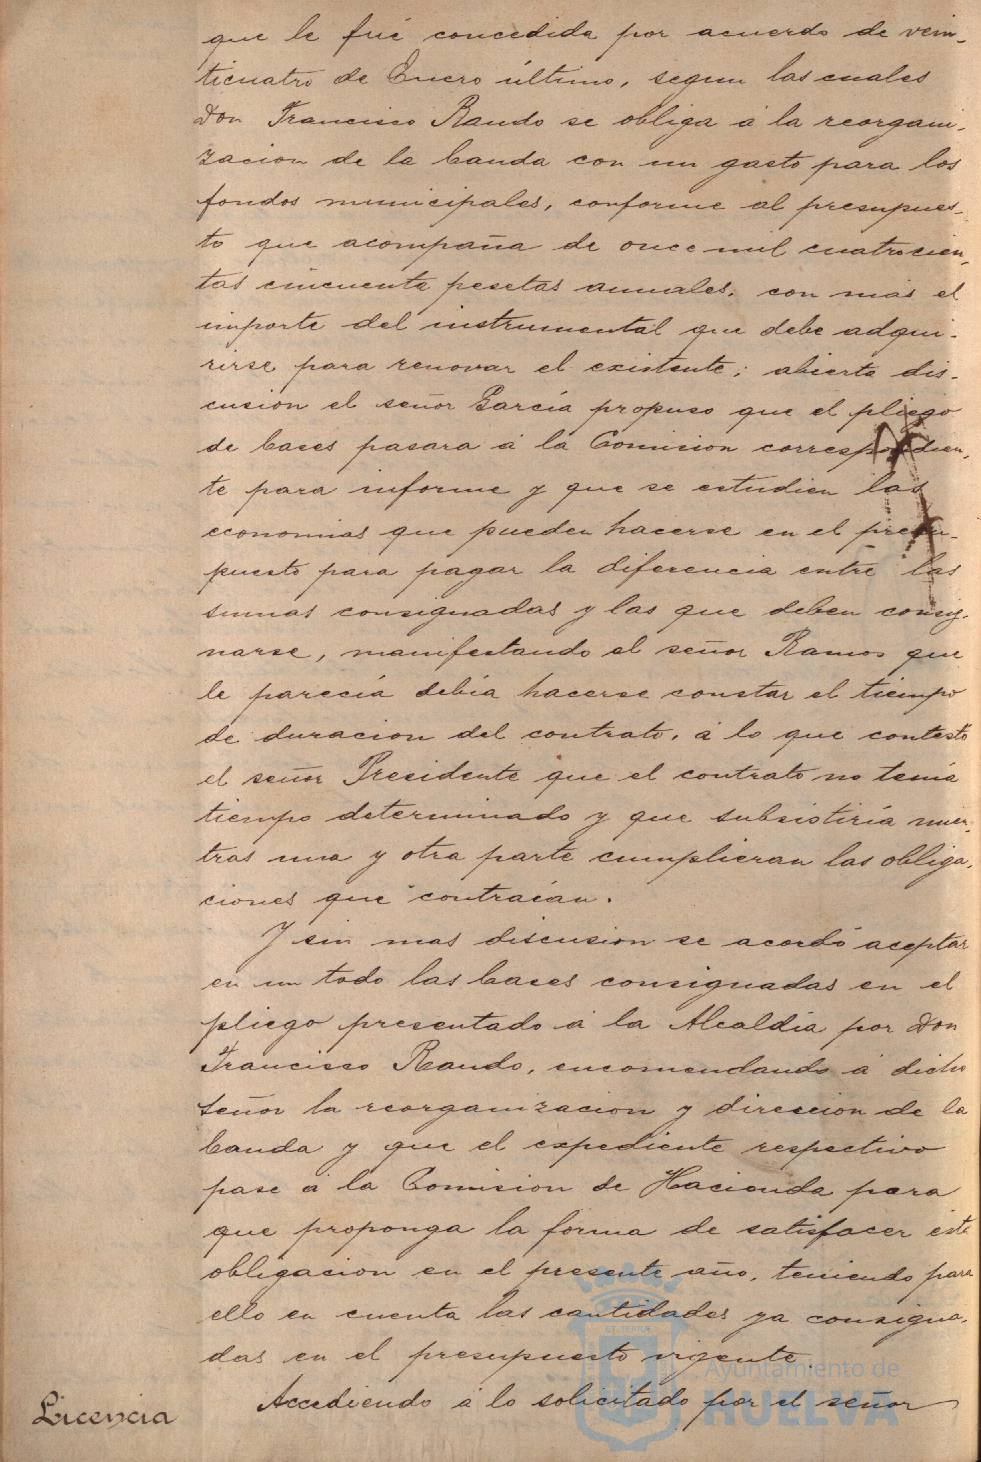 que le fué concedida por acuerdo de vein-
ticuatro de Enero último, segun las cuales
Don Francisco Rando se obliga á la reorgani-
zacion de la banda con un gasto para los
fondos municipales, conforme al presupues-
to que acompaña de once mil cuatrocien-
tas cincuenta pesetas anuales, con mas el
importe del instrumental que debe adqui-
rirse para renovar el existente; abierta dis-
cusion el señor García propuso que el pliego
de bases pasara á la Comision correspondien-
te para informe y que se estudien las
economias que pueden hacerse en el presu-
puesto para pagar la diferencia entre las
sumas consignadas y las que deben consig-
narse, manifestando el señor Ramos que
le parecia debía hacerse constar el tiempo
de duracion del contrato, á lo que contestó
el señor Presidente que el contrato no tenía
tiempo determinado y que subsistiría mien-
tras una y otra parte cumplieran las obliga-
ciones que contraían.
Y sin mas discusion se acordó aceptar
en un todo las bases consignadas en el
pliego presentado á la Alcaldía por Don
Francisco Rando, encomendando á dicho
señor la reorganizacion y direccion de la
banda y que el expediente respectivo
pase á la Comision de Hacienda para
que proponga la forma de satisfacer esta
obligacion en el presente año, teniendo para
ello en cuenta las cantidades ya consigna-
das en el presupuesto vigente.
Licencia
Accediendo á lo solicitado por el señor
Ayuntamiento de
HUELVA